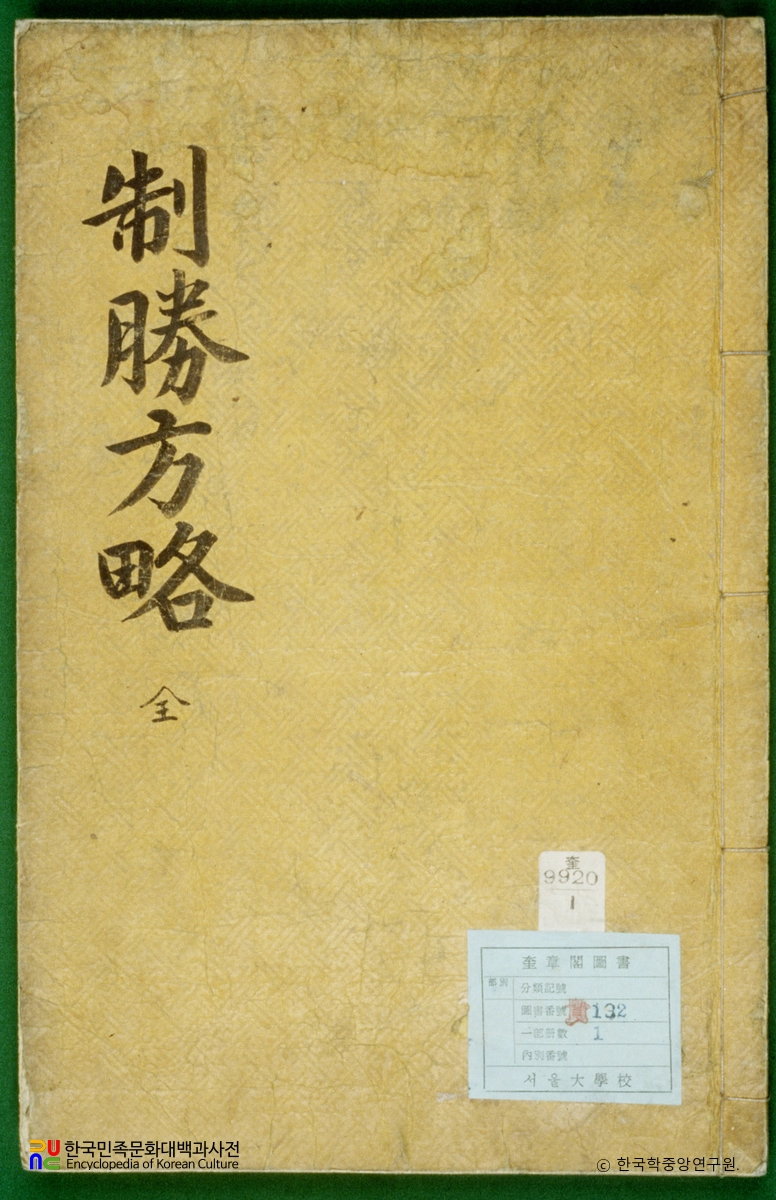 制勝方略
全
奎
9920
1
奎章閣圖書
部別
分類記號
圖書番號 132
一部冊數 1
內別番號
서울大學校
한국민족문화대백과사전
Encyclopedia of Korean Culture
ⓒ 한국학중앙연구원.